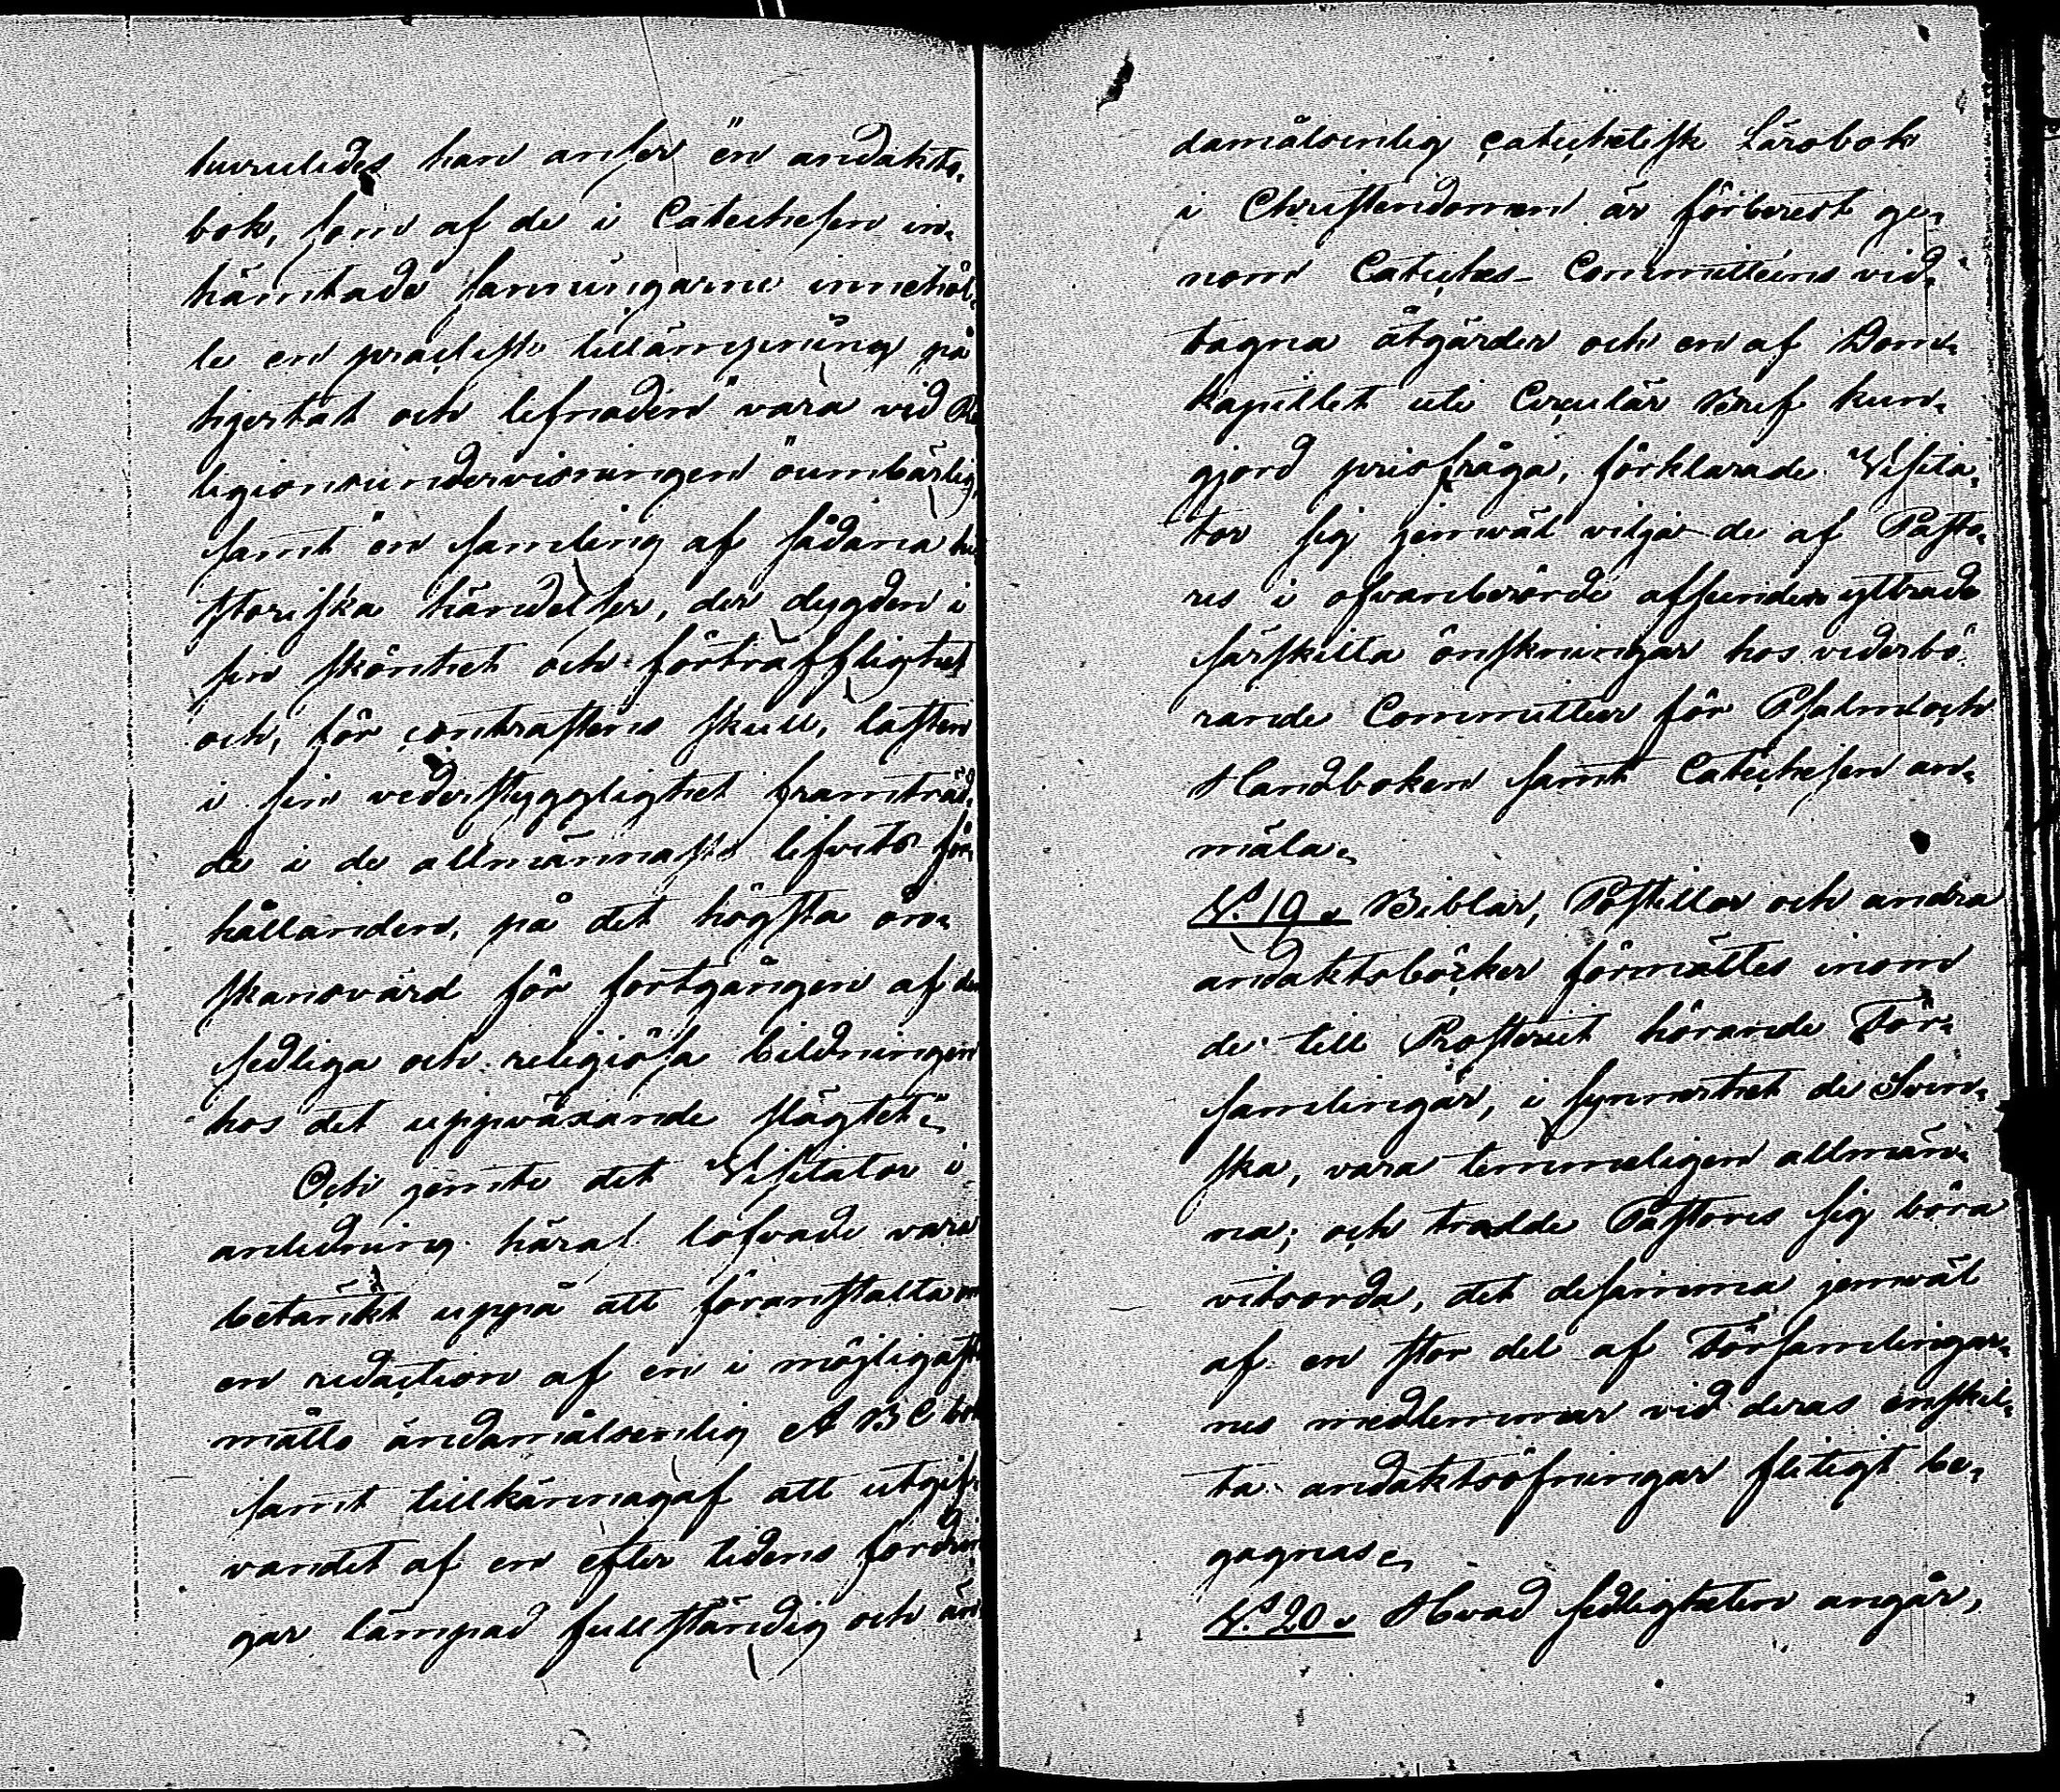 huruledes han anser "en andakts-
bok, som af de i Catechesen in-
hämtade sanningarne innehöl-
le en practisk tillämpning på
hjertat och lefnaden" vara vid Re
ligionsundervisningen "oumbärlig,
samt "en samling af sådana hi
storiska händelser, der dygden i
sin skönhet och förträfflighet
och, för contrastens skull, lasten
i sin vederstygglighet framträd-
de i de allmännaste lifvets för-
hållanden, på det högsta ön-
skansvärd för fortgången af den
sedliga och religiösa bildningen
hos det uppväxande slägtet."
Och jemte det Visitator i
anledning häraf lofvade vara
betänkt uppå att föranstalta om
en redaction af en i möjligaste
måtto ändamålsenlig A B C bok
samt tillkännagaf att utgif-
vandet af en efter tidens fordrin
gar lämpad fullständig och än-
damålsenlig catechetisk Lärobok
i Christendomen är förberedt ge-
nom Cateches-Committéens vid-
tagna åtgärder och en af Dom-
kapitlet uti Circulär Bref kun-
gjord prisfråga, förklarade Visita-
tor sig jemväl vilja de af Pasto-
res i ofvanberörde afseenden yttrade
särskilta önskningar hos vederbö-
rande Committeer för Psalm och
Handboken samt Catechesen an-
mäla.
N:o 19. Biblar, Postillor och andra
andaktsböcker förmältes inom
de till Prosteriet hörande För-
samlingar, i synnerhet de Sven-
ska, vara temmeligen allmän-
na; och trodde Pastores sig böra
vitsorda, det desamma jemväl
af en stor del af Församlingar-
nes medlemmar vid deras enskil-
ta andaktsöfningar flitigt be-
gagnas.
N:o 20. Hvad sedligheten angår,